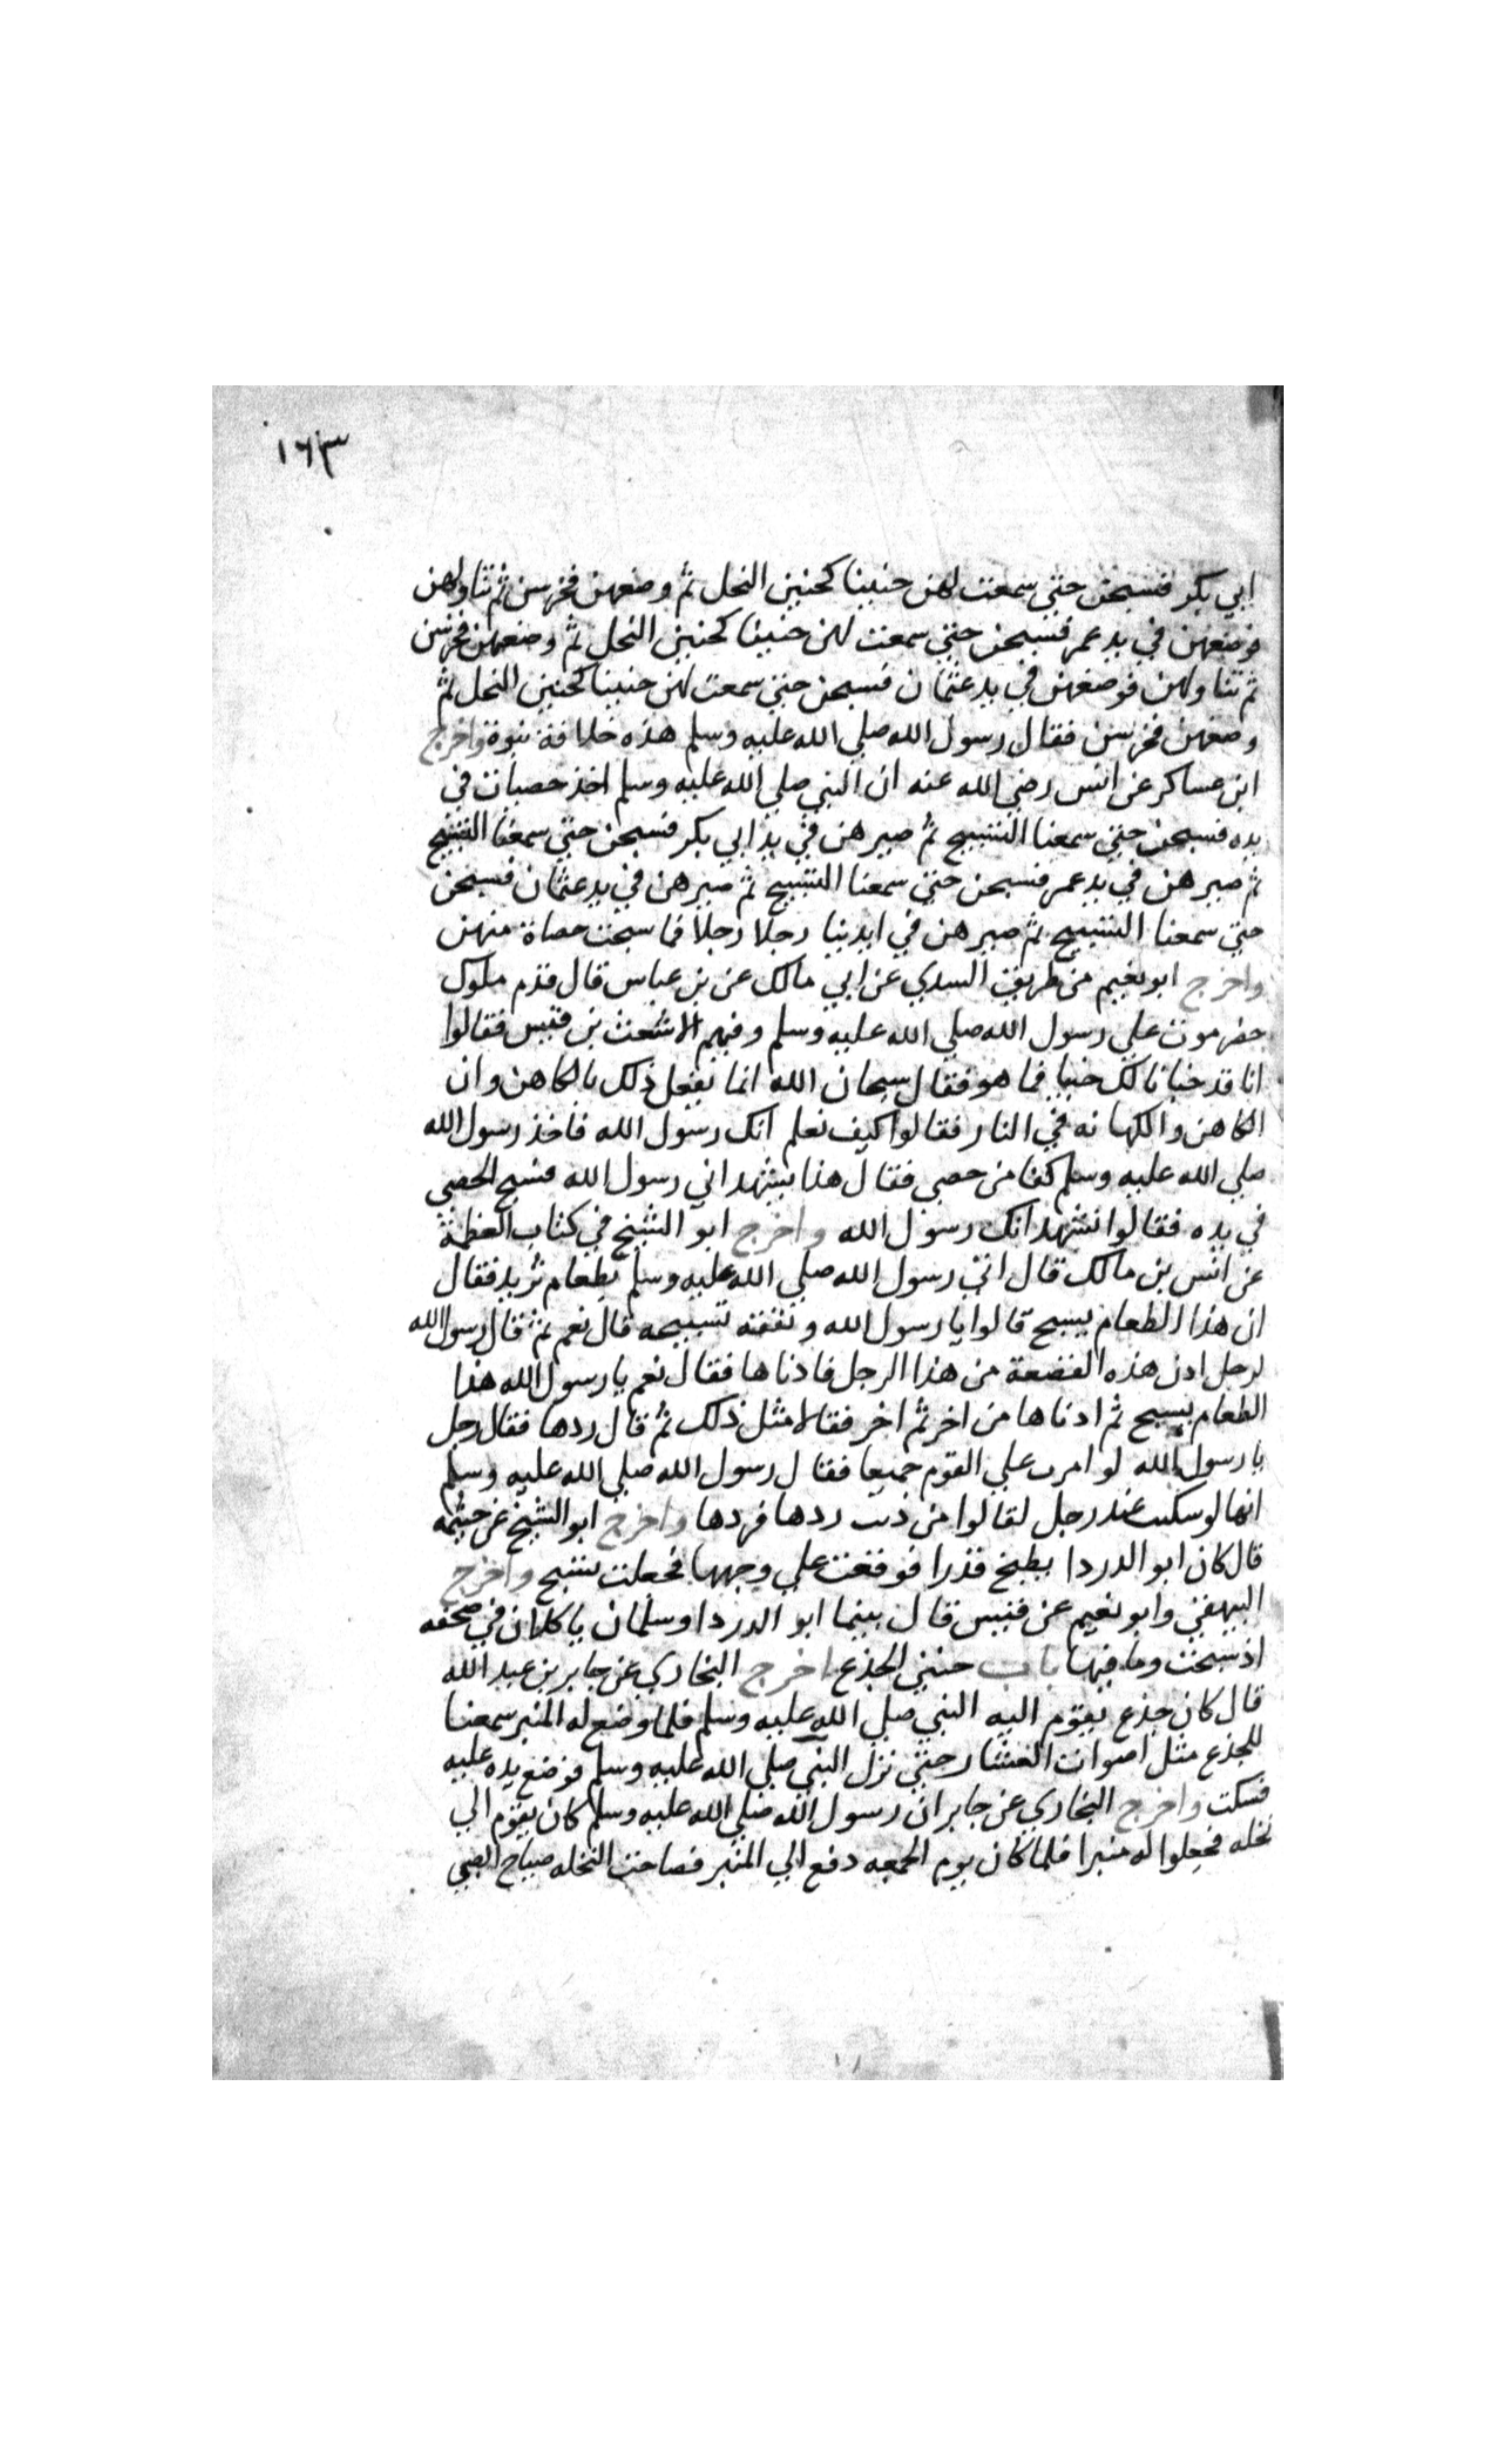 ١٦٣
ابي بكر فسبحن حتي سمعت لهن حنينا كحنين النحل ثم وضعهن فخرسن ثم تناولهن
فوضعهن في يد عمر فسبحن حتي سمعت لهن حنينا كحنين النحل ثم وضعهن فخرسن
ثم تناولهن فوضعهن في يد عثمان فسبحن حتي سمعت لهن حنينا كحنين النحل ثم
وضعهن فخرسن فقال رسول الله صلي الله عليه وسلم هذه خلافة نبوة واخرج
ابن عساكر عن انس رضي الله عنه ان النبي صلي الله عليه وسلم اخذ حصيات في
يده فسبحن حتي سمعنا التسبيح ثم صيرهن في يد ابي بكر فسبحن حتي سمعنا التسبيح
ثم صيرهن في يد عمر فسبحن حتي سمعنا التسبيح ثم صيرهن في يد عثمان فسبحن
حتي سمعنا التسبيح ثم صيرهن في ايدينا رجلا رجلا فما سبحت حصاة منهن
واخرج ابو نعيم من طريق السدي عن ابي مالك عن بن عباس قال قدم ملوك
حضرموت علي رسول الله صلي الله عليه وسلم وفيهم الاشعث بن قيس فقالوا
انا قد خبانا لك خبيا فما هو فقال سبحان الله انما يفعل ذلك بالكاهن وان
الكاهن والكهانه في النار فقالوا كيف نعلم انك رسول الله فاخذ رسول الله
صلي الله عليه وسلم كفا من حصي فقال هذا يشهد اني رسول الله فسبح الحصي
في يده فقالوا نشهد انك رسول الله واخرج ابو الشيخ في كتاب العظمة
عن انس بن مالك قال اتي رسول الله صلي الله عليه وسلم بطعام ثريد فقال
ان هذا الطعام يسبح قالوا يا رسول الله وتفقه تسبيحه قال نعم ثم قال رسول الله
لرجل ادن هذه القصعة من هذا الرجل فادناها فقال نعم يا رسول الله هذا
الطعام يسبح ثم ادناها من اخر ثم اخر فقالا مثل ذلك ثم قال ردها فقال رجل
يا رسول الله لو امرت علي القوم جميعا فقال رسول الله صلي الله عليه وسلم
انها لو سكتت عند رجل لقالوا من ذنب ردها فردها واخرج ابو الشيخ عن خيثمه
قال كان ابو الدردا يطبخ قدرا فوقعت علي وجهها فجعلت تسبح واخرج
البيهقي وابو نعيم عن قيس قال بينما ابو الدردا وسلمان ياكلان في صحفه
اذ سبحت وما فيها باب حنين الجذع اخرج البخاري عن جابر بن عبد الله
قال كان جذع يقوم اليه النبي صلي الله عليه وسلم فلما وضع له المنبر سمعنا
للجذع مثل اصوات العشار حتي نزل النبي صلي الله عليه وسلم فوضع يده عليه
فسكت واخرج البخاري عن جابر ان رسول الله صلي الله عليه وسلم كان يقوم الي
نخله فجعلوا له منبرا فلما كان يوم الجمعه دفع الي المنبر فصاحت النخله صياح الصبي